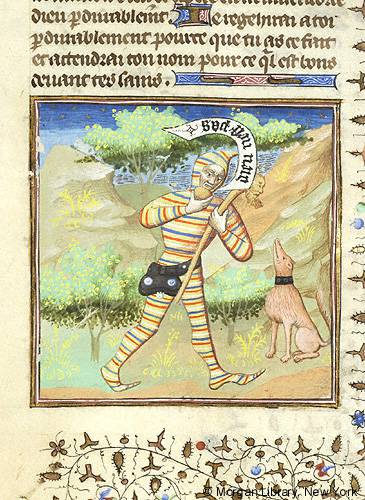 dieu pdurablemt. Je regehirai a toi
pdurablement pource que tu as ce fait
et attendrai ton nom pour ce ql est bons
deuant tes sains.
© Morgan Library, New York